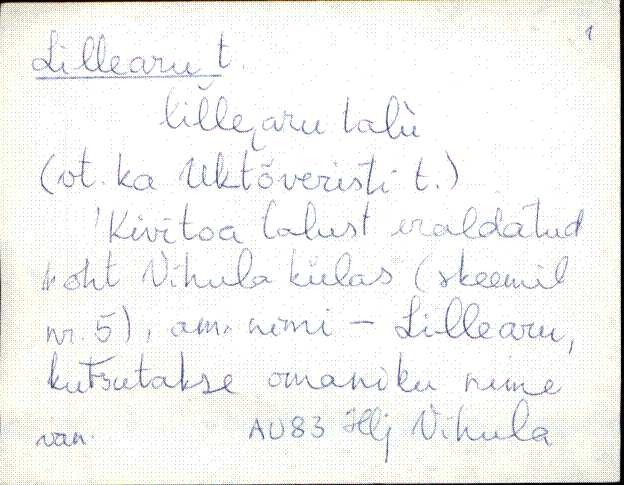 1
Lillearu t.
lillearu talù
(vt. ka Uktõveristi t.)
'Kivitoa talust eraldatud
koht Vihula külas (skeemil
nr. 5), am. nimi - Lillearu,
kutsutakse omaniku nime
van. AU83 Hlj Vihula